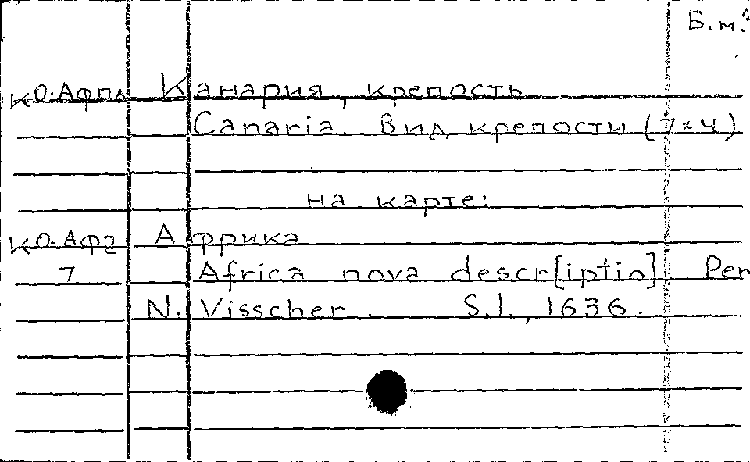 Б.м.
КО.Афпл Канария, крепость
Canaria. Вид крепости (7×4)
на карте:
КО.Аф2 Африка
7 Africa nova descr[iptio]. Per
N. Visscher. S.l., 1636.